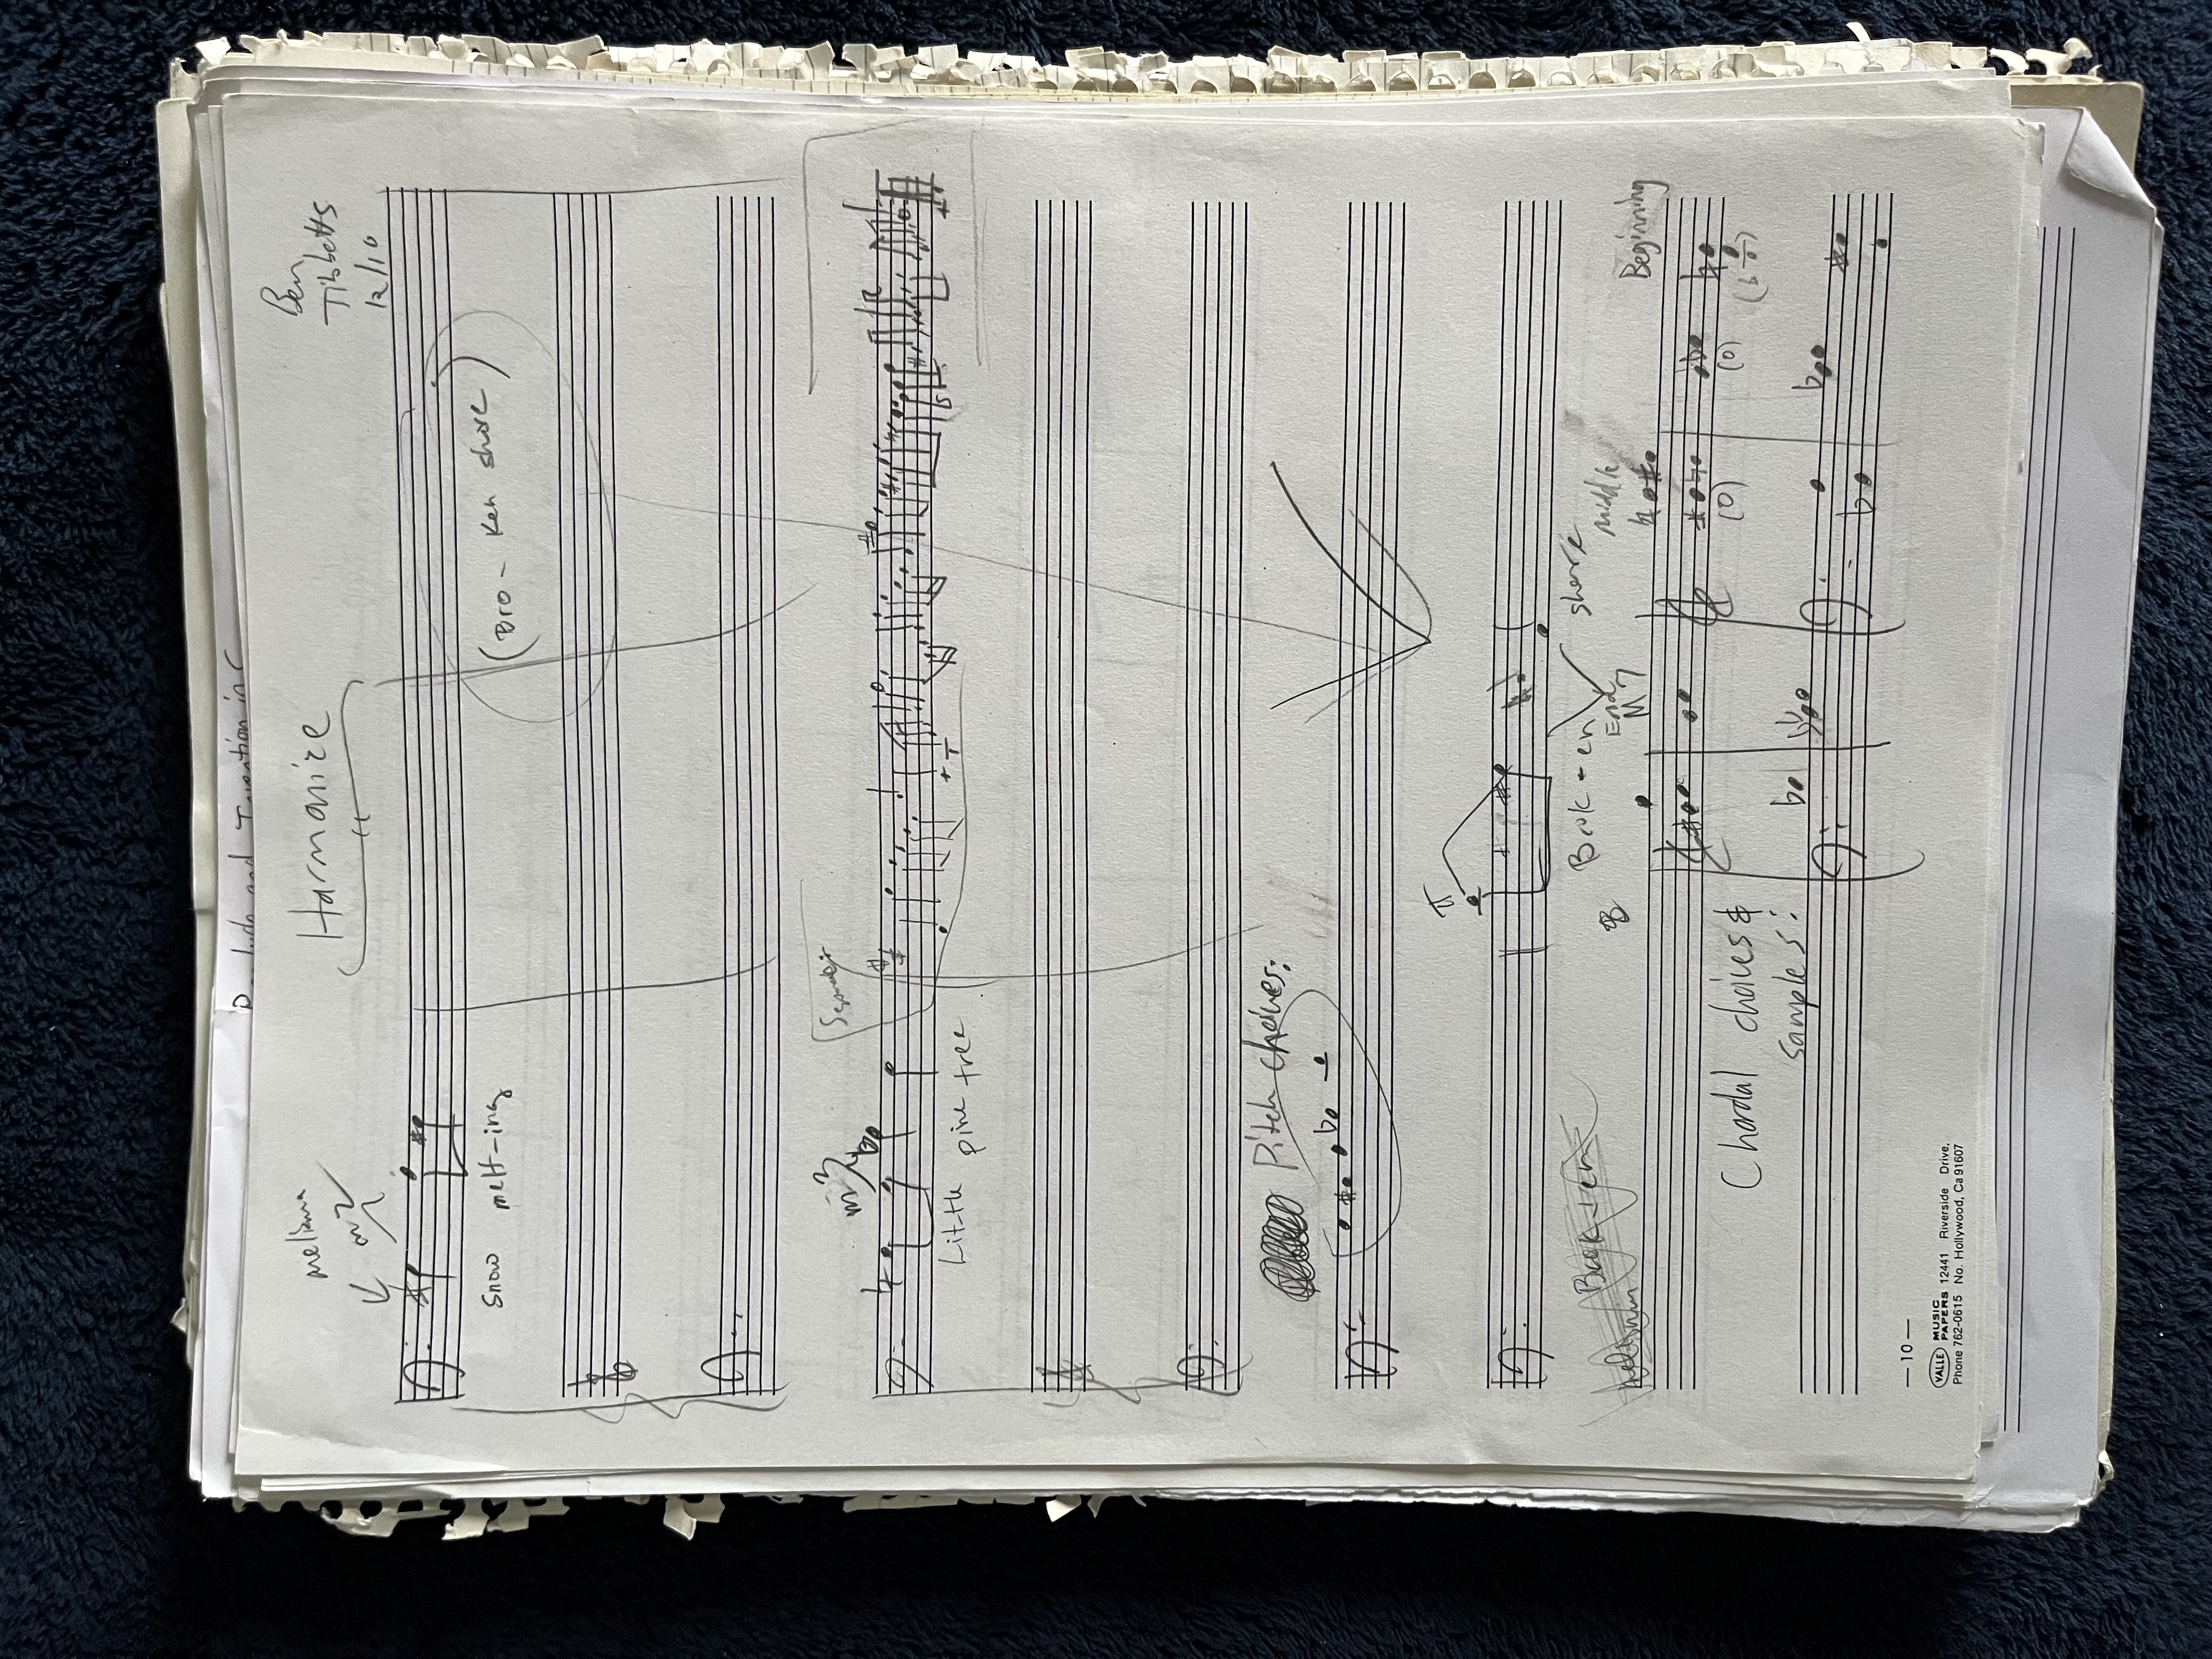 Ben
Tibbetts
12/10
Harmonize
melisma
m2
Snow melt-ing
(Bro - ken shore)
m3
Lit-tle pine tree
Pitch choices:
Book-en
shore
Beginning
middle
End
M7
Chordal choices &
samples:
— 10 —
VALLE MUSIC PAPERS 12441 Riverside Drive,
Phone 762-0615 No. Hollywood, Ca 91607